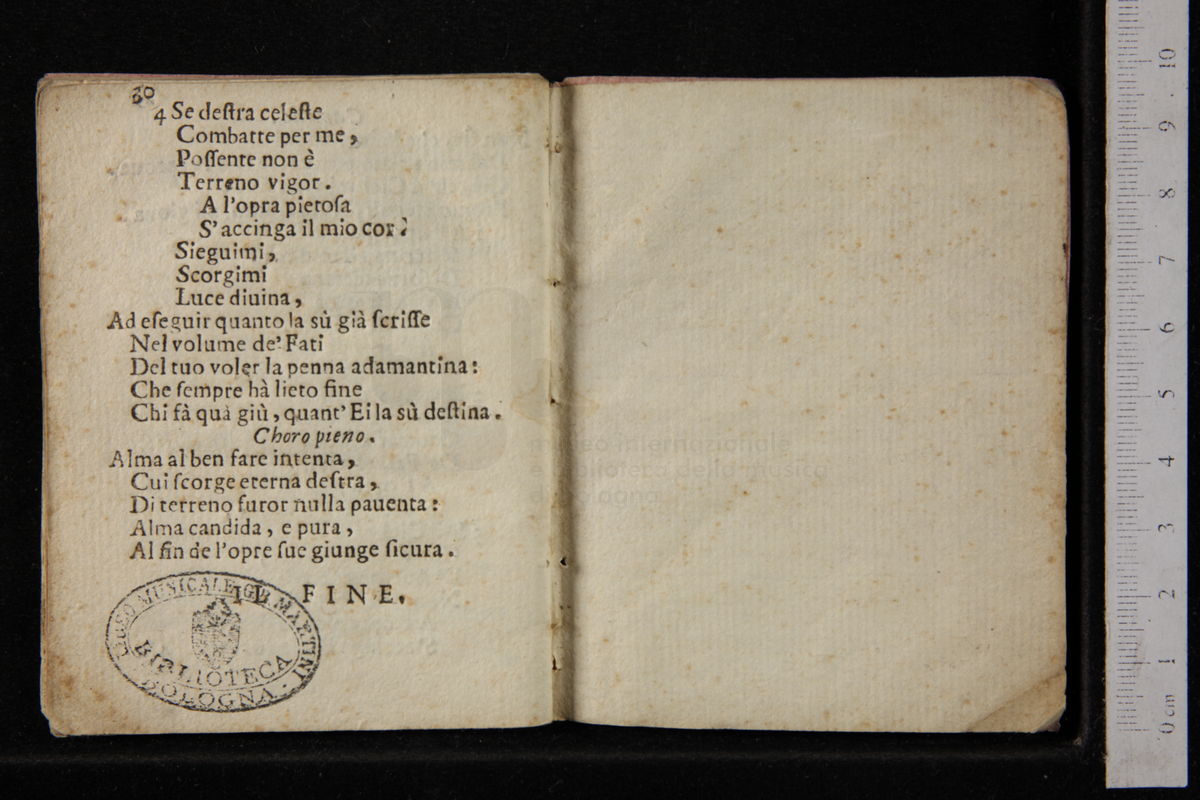 80
4 Se deſtra celeſte
Combatte per me,
Poſſente non è
Terreno vigor.
A l'opra pietoſa
S'accinga il mio cor:
Sieguimi,
Scorgimi
Luce diuina,
Ad eſeguir quanto la sù già ſcriſſe
Nel volume de' Fati
Del tuo voler la penna adamantina:
Che ſempre hà lieto fine
Chi fà quà giù, quant' Ei la sù deſtina.
Choro pieno.
Alma al ben fare intenta,
Cui ſcorge eterna deſtra,
Di terreno furor nulla pauenta:
Alma candida, e pura,
Al fin de l'opre ſue giunge ſicura.
IL FINE.
LICEO MUSICALE G.B. MARTINI
BIBLIOTECA
BOLOGNA
museo internazionale
e biblioteca della musica
di bologna
0 cm 1 2 3 4 5 6 7 8 9 10